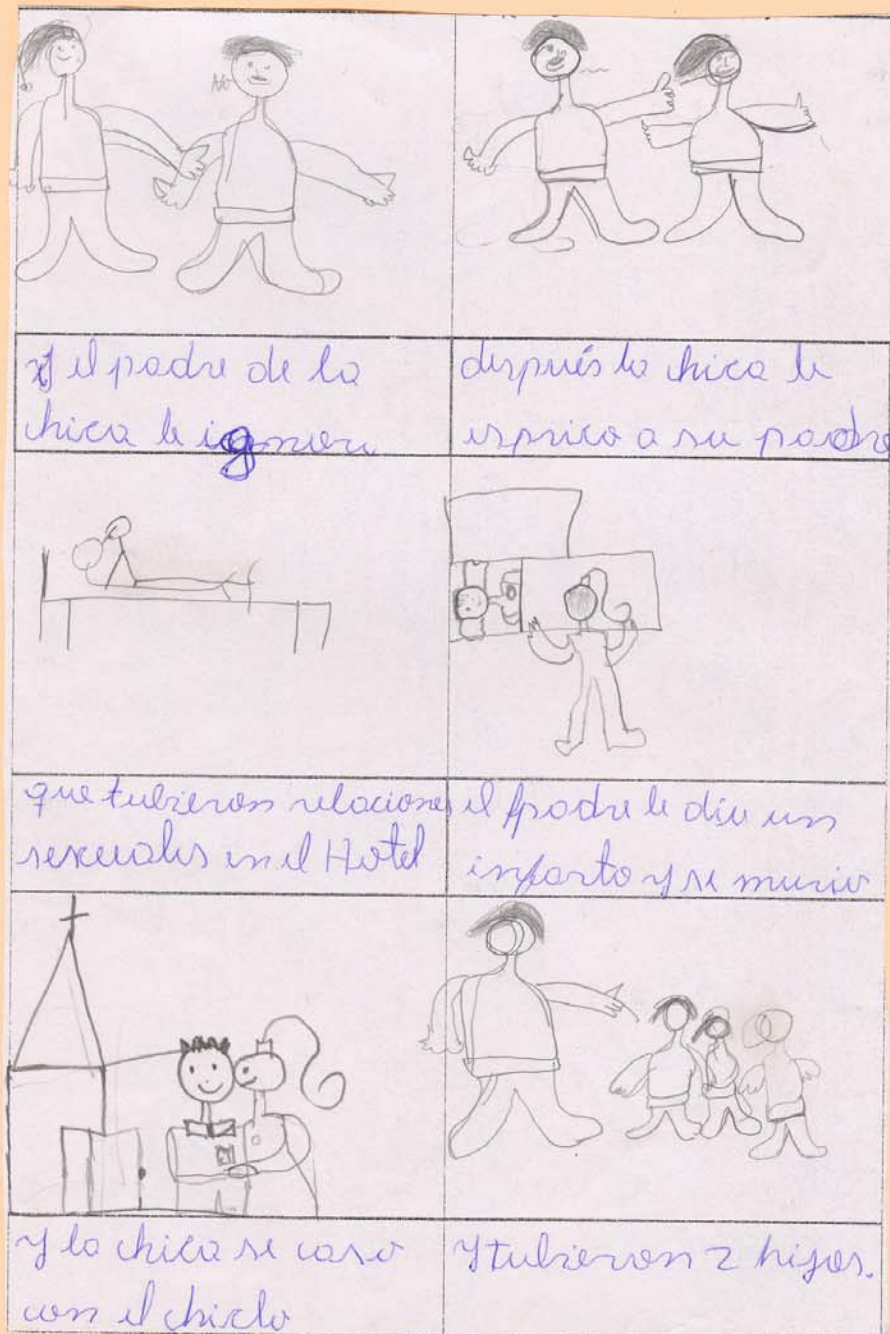 y el padre de la
chica le ignoro
después la chica le
esprico a su padre
que tubieron relaciones
sexuales en el Hotel
el padre le dio un
infarto y se murio
y la chica se caso
con el chiclo
y tubieron 2 hijos.